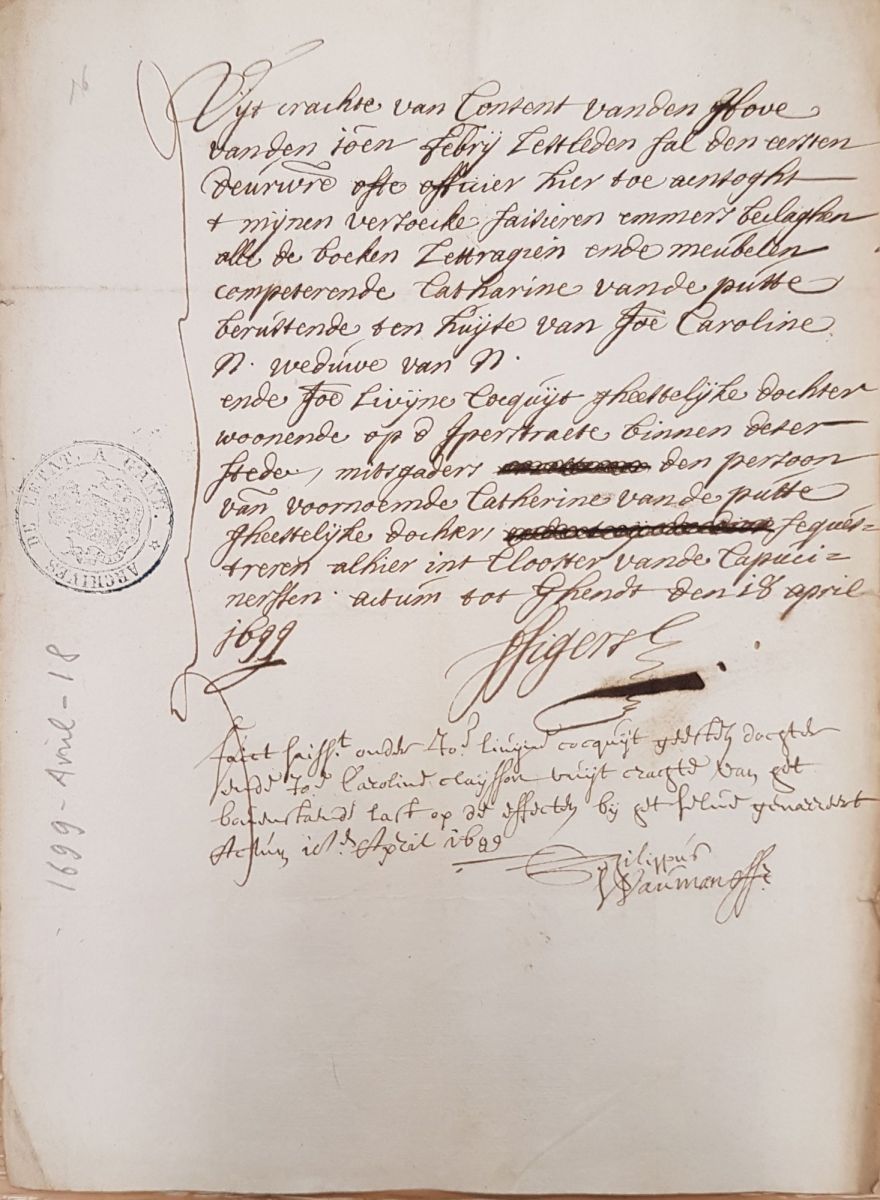 Uyt crachte van Consent vanden Hove
vanden 10en febrij Lestleden sal den eersten
deurwre ofte officier hier toe aensoght
t mijnen versoecke saisieren emmers beslaghen
alle de boeken Lettragien ende meubelen
competerende Catharine vande putte
berustende ten huyse van Joe Caroline
N. weduwe van N.
ende Joe Livijne Cocquyt gheestelijke dochter
woonende op d Iperstraete binnen deser
stede, mitsgaders den persoon
van voornoemde Catherine vande putte
gheestelijke dochter, seques=
treren alhier int Clooster vande Capuci=
nerssen. actum tot Ghendt den 18 april
1699
faict saisst. onder Joe. livijne cocquijt geestely dogter
ende Joe. Caroline claysson vuyt cragte van get
bovenstande last op de effecten by get selve genarreert
Actum 18en April 1699
philippus
Wauman
ARCHIVES DE L'ETAT, A GAND.
1699-Avril-18